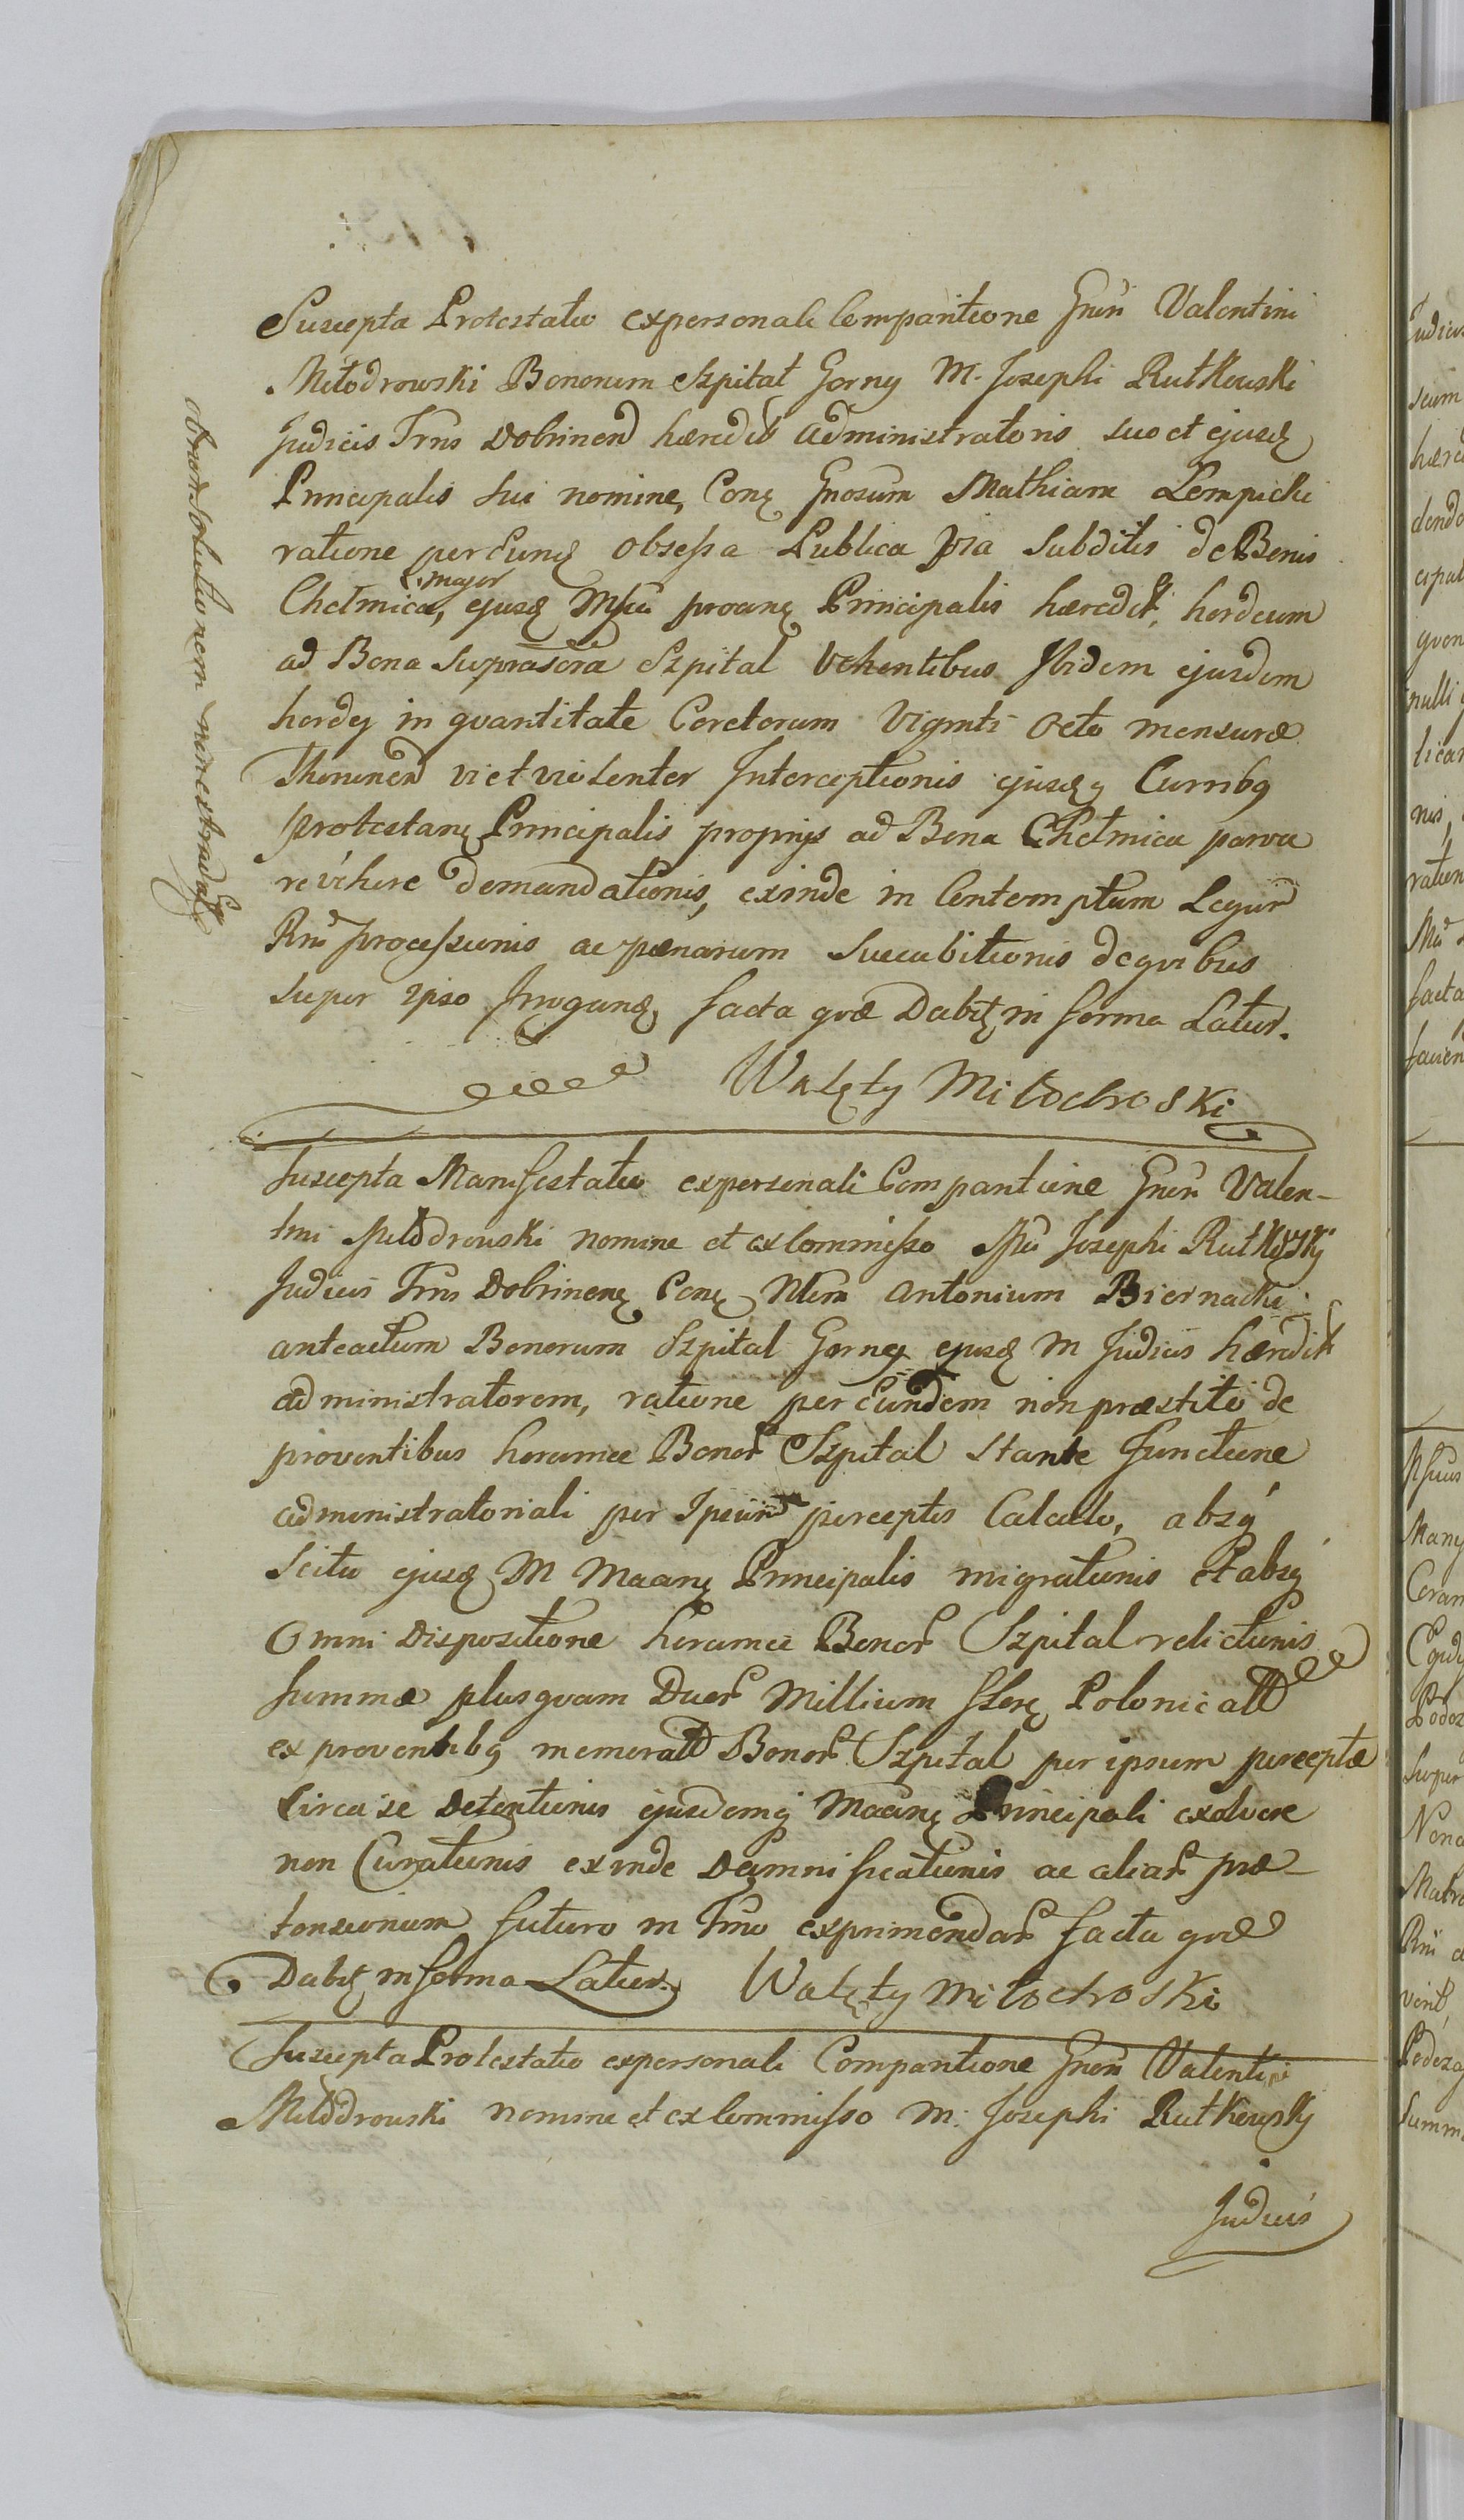 Suscepta Protestatio ex personali Comparitione Gnẽri Valentini
Miłodrowski Bonorum Szpital Gorny M. Josephi Rutkowski
Judicis Trris Dobrinen hæredit administratoris suo et ejusdę
Principalis sui nomine, Conę Gnosum Mathiam Lempicki
ratione per Eundę obsessa Publica via subditis de Bonis
Chełmica major, ejusdę Mfci proanę Principalis hæredit, hordeum
ad Bona suprascra Szpital vehentibus Ibidem ejusdem
hordey in qvantitate Coretorum viginti octo mensuræ
Thorunen vi et violenter Interceptionis ejusdęq Curribq
protestanę Principalis proprijs ad Bona Chełmica parva
revehere demandationis, exinde in Contemptum Legum
Rni processionis ac pœnarum succubitionis de qvibus
super ipso Irrogandę, facta qvæ Dabitę in forma Latior.
Walęty Miłodroski
Suscepta Manifestatio ex personali Comparitione Gnẽri Valen-
tini Miłodrowski nomine et ex Commisso Mfci Josephi Rutkowsky
Judicis Trris Dobrinenę Conę Nlem Antonium Biernacki
anteactum Bonorum Szpital Gorny ejusdę M Judicis hæredit
administratorem, ratione per Eundem non præstiti de
proventibus horumce Bonor Szpital stante Functione
administratoriali per Ipsum perceptis Calculo, absq
scitu ejusdę M Maanę Principalis migrationis Et absq
omni Dispositione horumce Bonor Szpital relictionis
summæ plusqvam Duor Millium florę Polonicall
ex proventibq memorall Bonor Szpital per ipsum perceptæ
Circa se Detentionis ejusdemq Maanę Principali exolvere
non Curationis exinde Damnificationis ac aliar præ-
tensionum futuro in Trrio exprimendar facta qvæ
Dabitę in forma Latior. Walęty Miłodroski
Suscepta Protestatio ex personali Comparitione Gnẽri Valentini
Miłodrowski nomine et ex Commisso M. Josephi Rutkowsky
Judicis